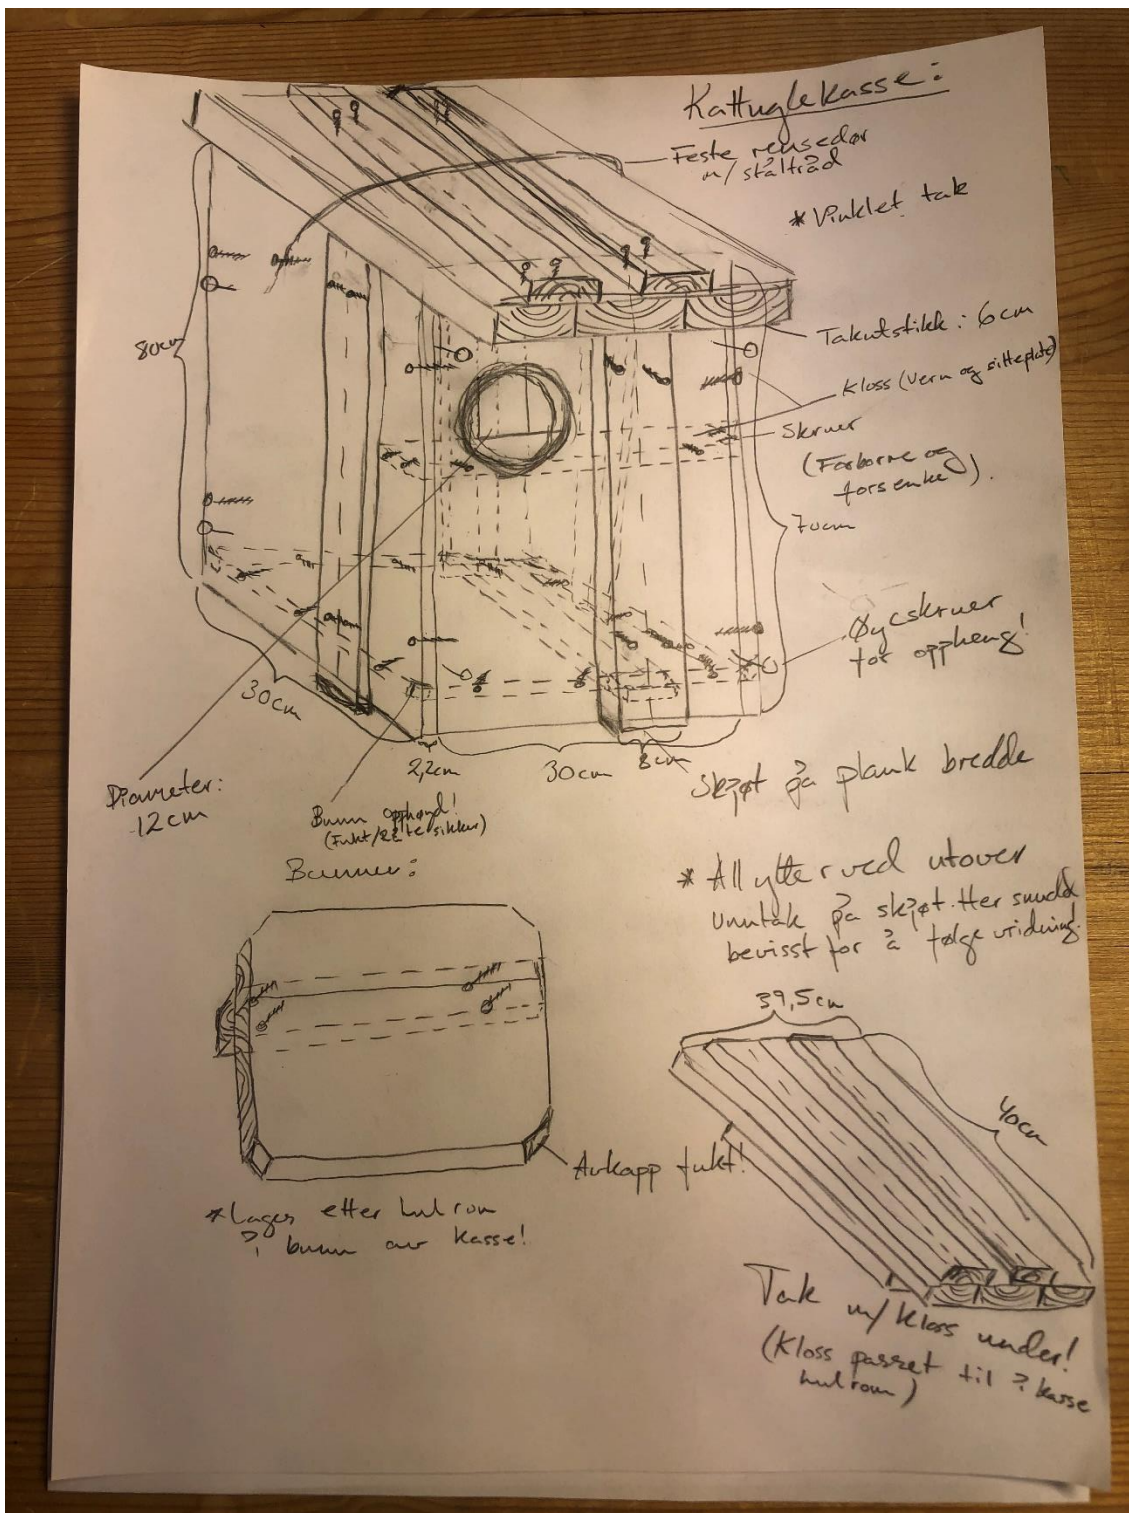 Kattuglekasse:
Feste rensedør
m/ ståltråd
* Vinklet tak
80cm
Takutstikk: 6cm
Kloss (Vern og sitteplate)
Skruer
(Forborre og
forsenke).
70cm
Øyeskruer
for oppheng!
30cm
2,2cm
30cm
8cm
Skjøt på plank bredde
Diameter:
12cm
Bunn opphøyd!
(Fukt/ sikker)
Bunnen:
* All ytterved utover
Unntak på skjøt. Her snudd
bevisst for å følge vridning.
39,5cm
40cm
Avkapp fukt!
* Lages etter hulrom
i bunn av kasse!
Tak m/ kloss under!
(Kloss passet til i kasse
hulrom)